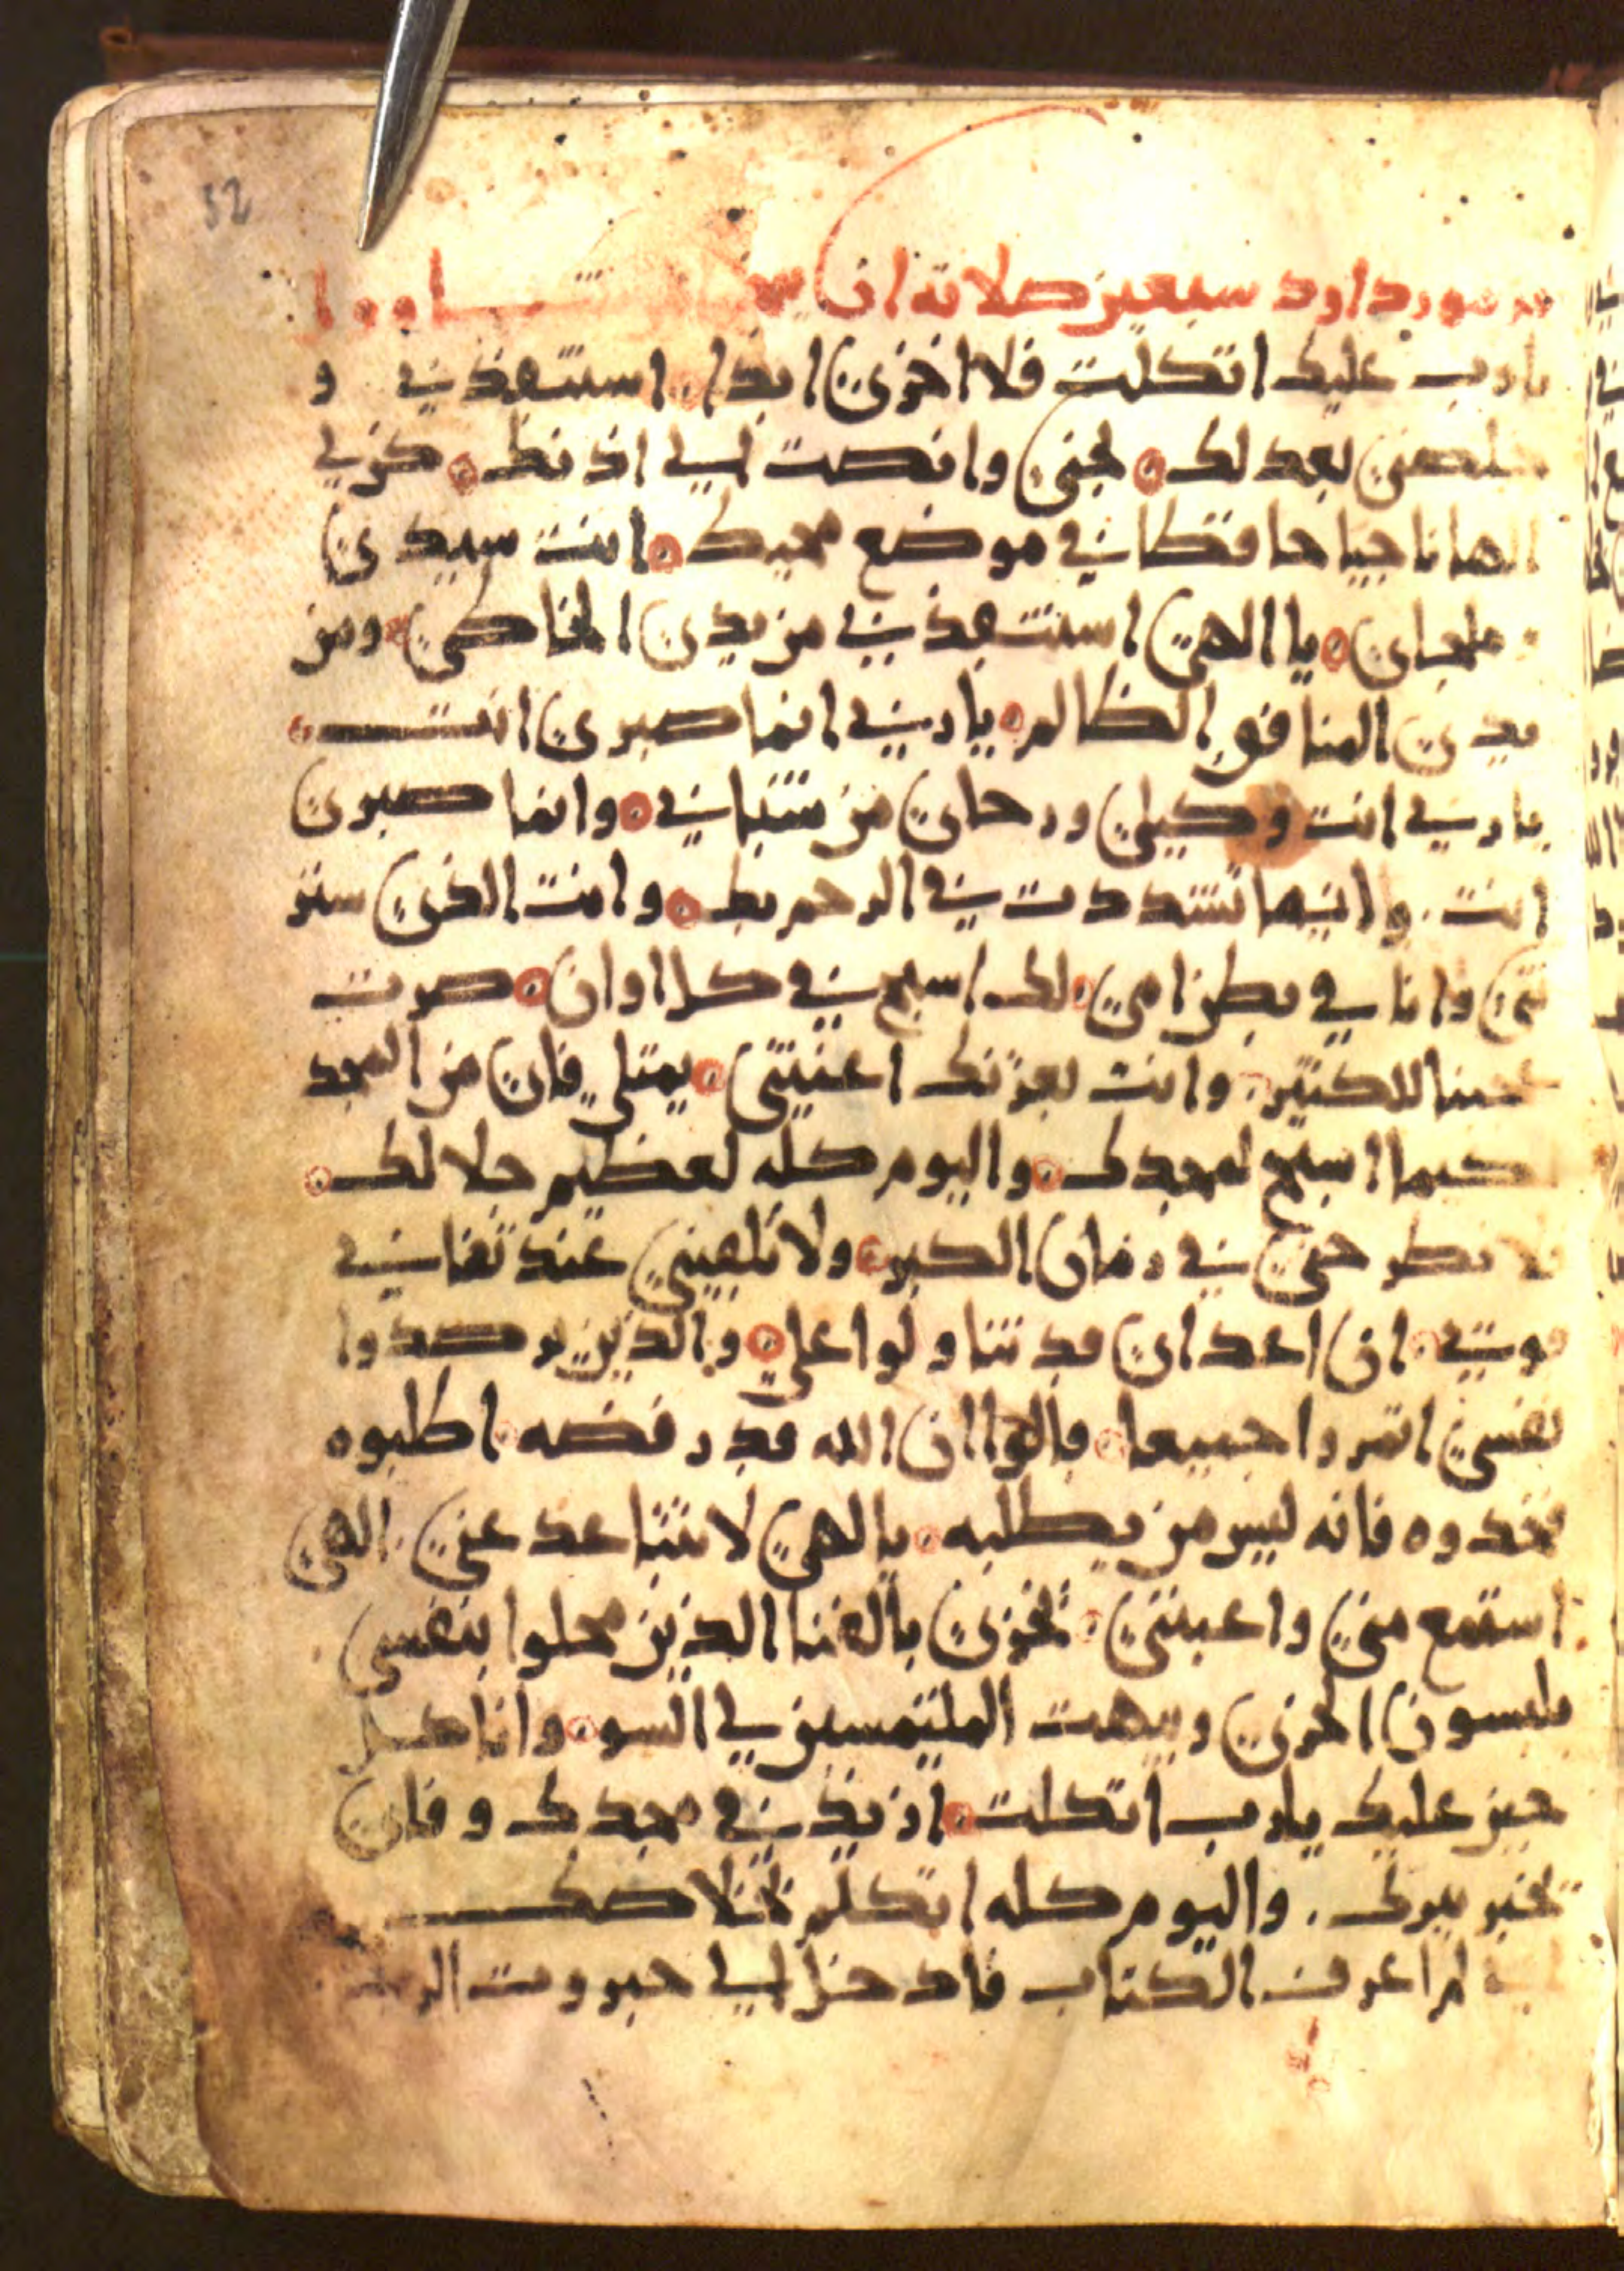 52
مزمور داود سبعين صلاته ان
يا رب عليك اتكلت فلا اخزى ابدا. استنقذني و
خلصني بعدلك. نجني وانصت الي اذنك. كن لي
الها ناجيا حافظا في موضع محيك. انت سيدي
وملجاي. يا الهي استنقذني من يدي الخاطي ومن
يدي المنافق الظالم. يا ربي انما صبري انت.
يا ربي انت وكيلي ورجاي من شبابي. وانما صبري
انت. وانما تشددت في الرحم بك. وانت الذي ستر
تني وانا في بطن امي. لك اسبح في كل اوان. صرت
عجبا للكثير. وانت بعزتك اعنتني. يمتلي فاي من المجد
كيما اسبح لمجدك. واليوم كله لعظيم جلالك.
لا تطرحني في زمان الكبر. ولا تلقيني عند تفاني
قوتي. ان اعداي قد تناولوا علي. والذين يرصدوا
نفسي اتمروا جميعا. قالوا ان الله قد رفضه. اطلبوه
فخدوه فانه ليس من يطلبه. يا لهي لا تتباعد عني. الهي
استمع مني واعينني. تخزى بالفنا الذين محلوا بنفسي
يلبسون الخزي ويبهت الملتمسين لي السو. وانا كل
حين عليك يا رب اتكلت. ازيد في مجدك وفاي
تخبر ببرك. واليوم كله اتكلم بخلاصك
لم اعرف الكتاب فادخل الي جبروت الرب